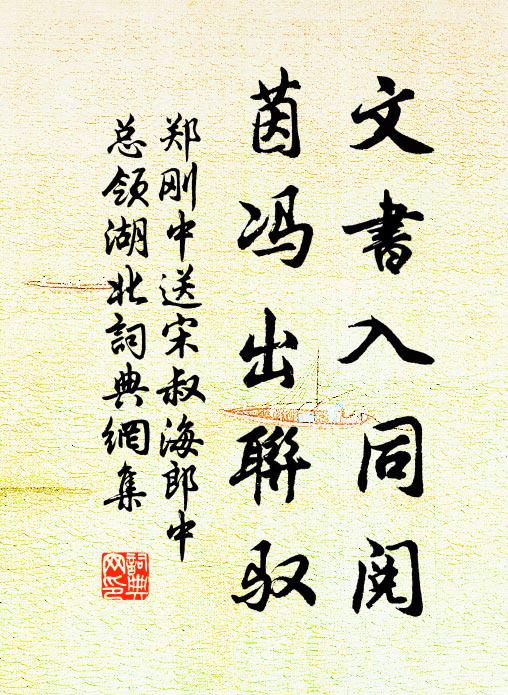 文書入同阅
茵冯出聯驭
郑刚中送宋叔海郎中
总领湖北詞典網集
詞典
网印